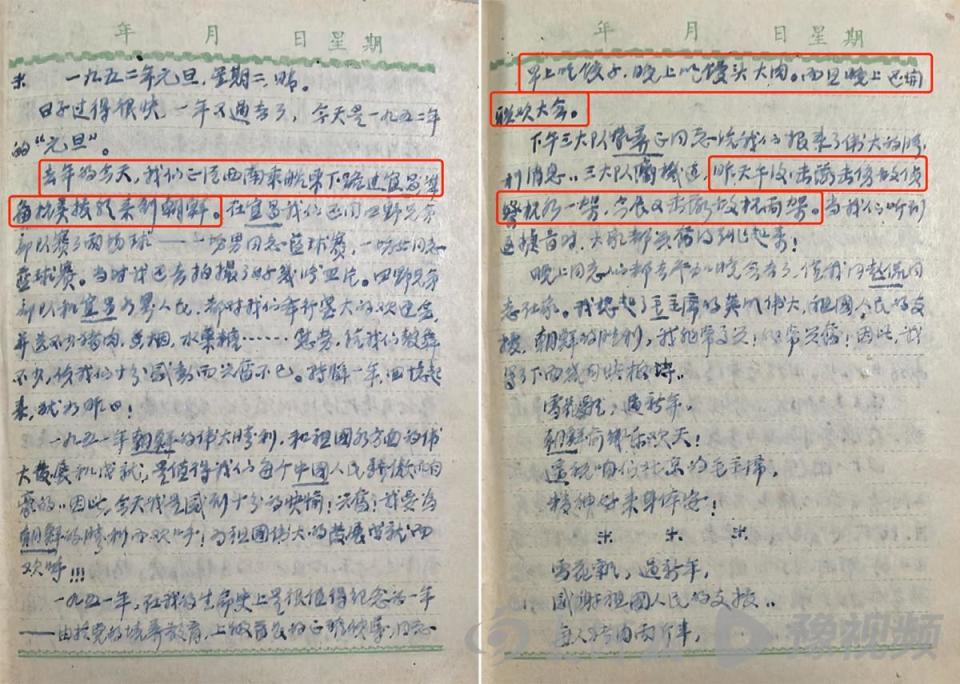 年 月 日 星期
一九五二年元旦,星期二,晴。
日子过得很快,一年又过去了,今天是一九五二年
的“元旦”。
去年的今天,我们正从西南乘船东下路过宜昌准
备抗美援朝来到朝鲜。在宜昌我们还同四野兄弟
部队赛了两场球——一场男同志篮球赛,一场女同志
篮球赛。当时我还去拍摄了好几张照片。四野兄弟
部队和宜昌各界人民,都对我们举行盛大的欢迎会,
并送不少猪肉,香烟,水果糖……慰劳,给我们鼓舞
不少,给我们十分感动而兴奋不已。时隔一年,回忆起
来,犹如昨日!
一九五一年朝鲜的伟大胜利,和祖国各方面的伟
大发展和成就,是值得我们每个中国人民骄傲和自
豪的。因此,今天我是感到十分的快愉!兴奋!我要为
朝鲜的胜利而欢呼!为祖国伟大的发展成就而
欢呼!!!
一九五一年,在我的生命史上是很值得纪念的一年
——由于党的培养教育,上级首长的正确领导,同志
年 月 日 星期
早上吃饺子,晚上吃馒头大肉。而且晚上还搞
联欢大会。
下午三大队 正同志给我们报来了伟大的胜
利消息。三大队 机连,昨天午后击落击伤敌侦
察机各一架,今天又击落敌机两架。当我们听到
这捷音时,大家都兴奋的 起来!
晚上同志们都去参加晚会去了,仅我同赵 同
志在家。我想起了毛主席的英明伟大,祖国人民的支
援,朝鲜的胜利,我非常高兴!非常兴奋!因此,我
写下了两段
雪花飘,过新年。
朝鲜前线乐欢天!
遥祝咱们北京的毛主席,
精神好来身体安!
雪花飘,过新年,
感谢祖国人民的支援。
每人猪肉两斤半,
豫视频